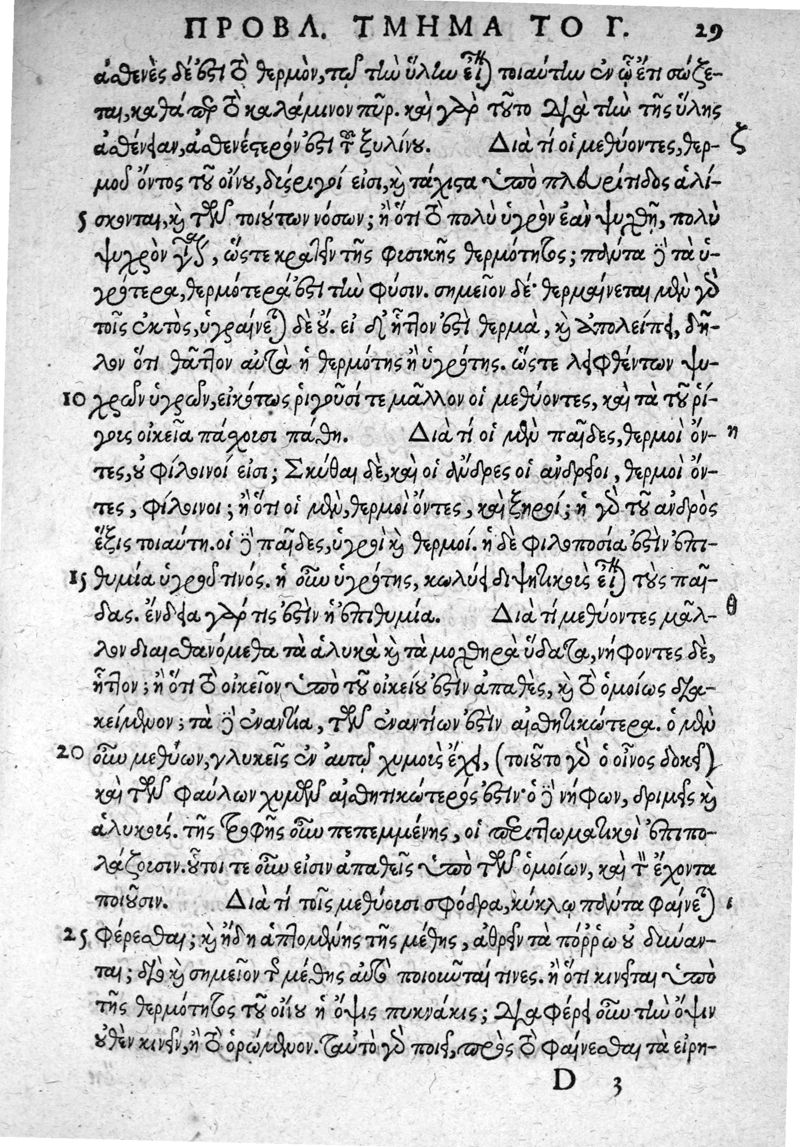 ΠΡΟΒΛ. ΤΜΗΜΑ ΤΟ Γ. 29
ἀσθενὲς δέ ἐστι τὸ θερμὸν, τῷ τὴν ὕλην εἶναι τοιαύτην ἐν ᾧ ἔτι σώζε-
ται, καθάπερ τὸ καλάμινον πῦρ. καὶ γὰρ τοῦτο διὰ τὴν τῆς ὕλης
ἀσθένειαν, ἀσθενέστερόν ἐστι τοῦ ξυλίνου. Διὰ τί οἱ μεθύοντες, θερ- ζ
μοῦ ὄντος τοῦ οἴνου, δύσριγοί εἰσι, καὶ τάχιστα ὑπὸ πλευρίτιδος ἁλί-
5 σκονται, καὶ τῶν τοιούτων νόσων; ἢ ὅτι τὸ πολὺ ὑγρὸν ἐὰν ψυχθῇ, πολὺ
ψυχρὸν γίνεται, ὥστε κρατεῖν τῆς φυσικῆς θερμότητος; πάντα δὲ τὰ ὑ-
γρότερα, θερμότερά ἐστι τὴν φύσιν. σημεῖον δέ· θερμαίνεται μὲν γὰρ
τοῖς ἐκτὸς, ὑγραίνεται δὲ οὔ. εἰ δ' ἧττον ἐστὶ θερμὰ, καὶ ἀπολείπει, δῆ-
λον ὅτι θᾶττον αὐτὰ ἡ θερμότης ἢ ὑγρότης. ὥστε λειφθέντων ψυ-
10 χρῶν ὑγρῶν, εἰκότως ῥιγοῦσί τε μᾶλλον οἱ μεθύοντες, καὶ τὰ τοῦ ῥί-
γους οἰκεῖα πάσχουσι πάθη. Διὰ τί οἱ μὲν παῖδες, θερμοὶ ὄν- η
τες, οὐ φίλοινοί εἰσι; Σκύθαι δὲ, καὶ οἱ ἄνδρες οἱ ἀνδρεῖοι, θερμοὶ ὄν-
τες, φίλοινοι; ἢ ὅτι οἱ μὲν, θερμοὶ ὄντες, καὶ ξηροί; ἡ γὰρ τοῦ ἀνδρὸς
ἕξις τοιαύτη. οἱ δὲ παῖδες, ὑγροὶ καὶ θερμοί. ἡ δὲ φιλοποσία ἐστὶν ἐπι-
15 θυμία ὑγροῦ τινός. ἡ οὖν ὑγρότης, κωλύει διψητικοὺς εἶναι τοὺς παῖ-
δας. ἔνδεια γάρ τις ἐστὶν ἡ ἐπιθυμία. Διὰ τί μεθύοντες μᾶλ- θ
λον διαισθανόμεθα τὰ ἁλυκὰ καὶ τὰ μοχθηρὰ ὕδατα, νήφοντες δὲ,
ἧττον; ἢ ὅτι τὸ οἰκεῖον ὑπὸ τοῦ οἰκείου ἐστὶν ἀπαθὲς, καὶ τὸ ὁμοίως δια-
κείμενον; τὰ δὲ ἐναντία, τῶν ἐναντίων ἐστὶν αἰσθητικώτερα. ὁ μὲν
20 οὖν μεθύων, γλυκεῖς ἐν αὑτῷ χυμοὺς ἔχει, (τοιοῦτο γὰρ ὁ οἶνος δοκεῖ)
καὶ τῶν φαύλων χυμῶν αἰσθητικώτερός ἐστιν· ὁ δὲ νήφων, δριμεῖς καὶ
ἁλυκούς. τῆς τροφῆς οὖν πεπεμμένης, οἱ περιττωματικοὶ ἐπιπο-
λάζουσιν. οὗτοί τε οὖν εἰσιν ἀπαθεῖς ὑπὸ τῶν ὁμοίων, καὶ τὸν ἔχοντα
ποιοῦσιν. Διὰ τί τοῖς μεθύουσι σφόδρα, κύκλῳ πάντα φαίνεται ι
25 φέρεσθαι; καὶ ἤδη ἁπτομένης τῆς μέθης, ἀθρεῖν τὰ πόῤῥω οὐ δύναν-
ται; διὸ καὶ σημεῖον τῆς μέθης αὐτὸ ποιοῦνταί τινες. ἢ ὅτι κινεῖται ὑπὸ
τῆς θερμότητος τοῦ οἴνου ἡ ὄψις πυκνάκις; διαφέρει οὖν τὴν ὄψιν
οὐθὲν κινεῖν, ἢ τὸ ὁρώμενον. ταὐτὸ γὰρ ποιεῖ, πρὸς τὸ φαίνεσθαι τὰ εἰρη-
D 3